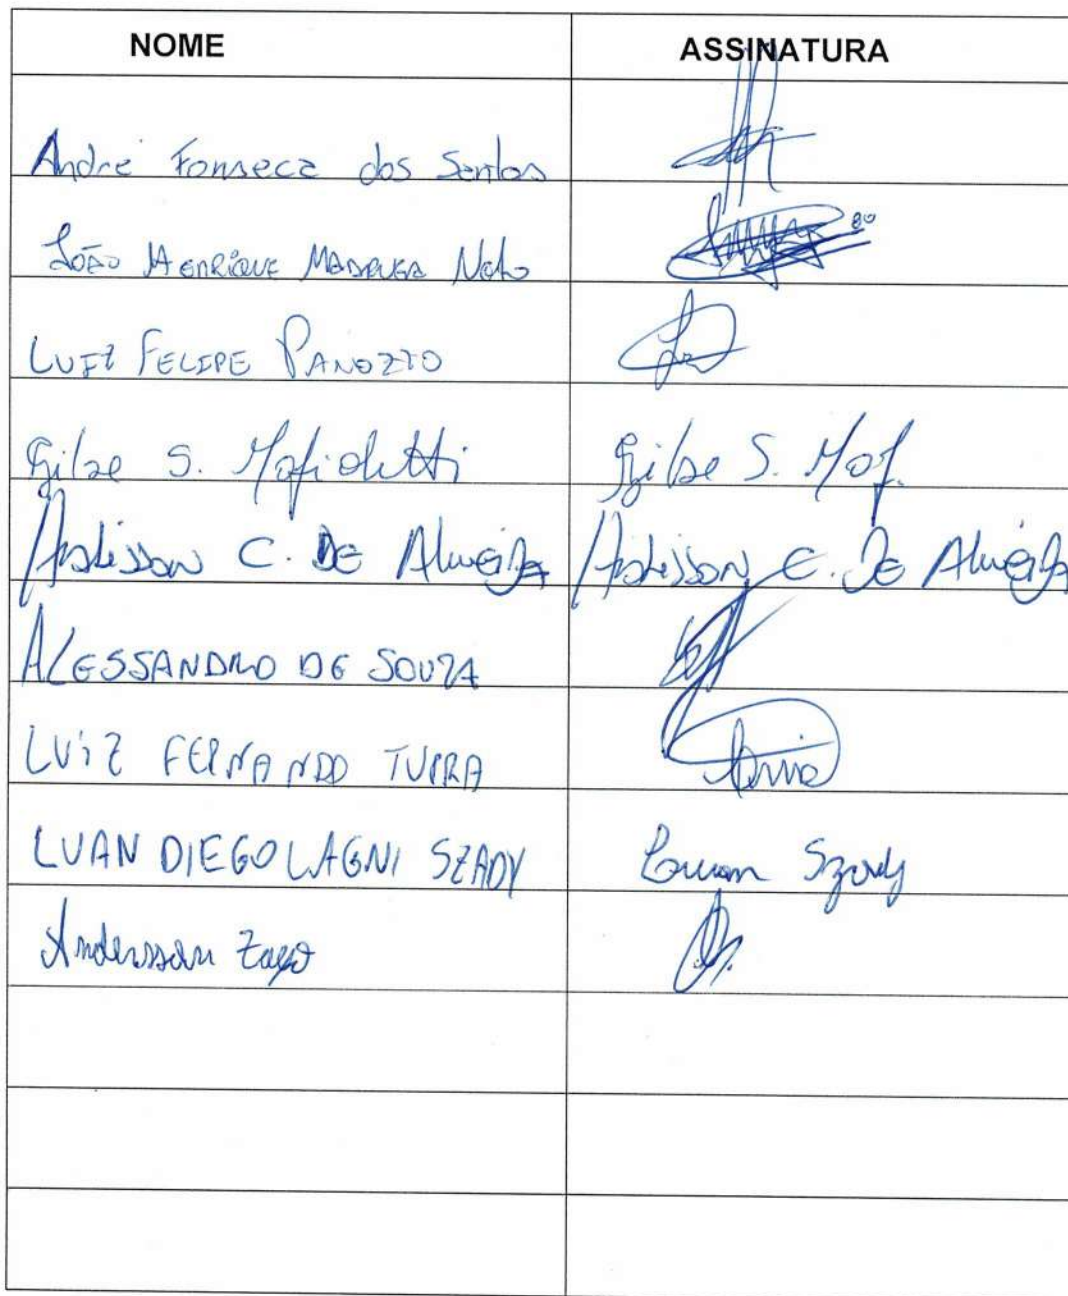 NOME ASSINATURA
André Fonseca dos Santos
João Henrique Madruga Neto
LUIZ FELIPE PANOZZO
Gilse S. Mafioletti Gilse S. Maf.
C. DE Almeida C. De Almeida
ALESSANDRO DE SOUZA
LUIZ FERNANDO TURRA
LUAN DIEGO LAGNI SZADY Luan Szady
Andersson Zago